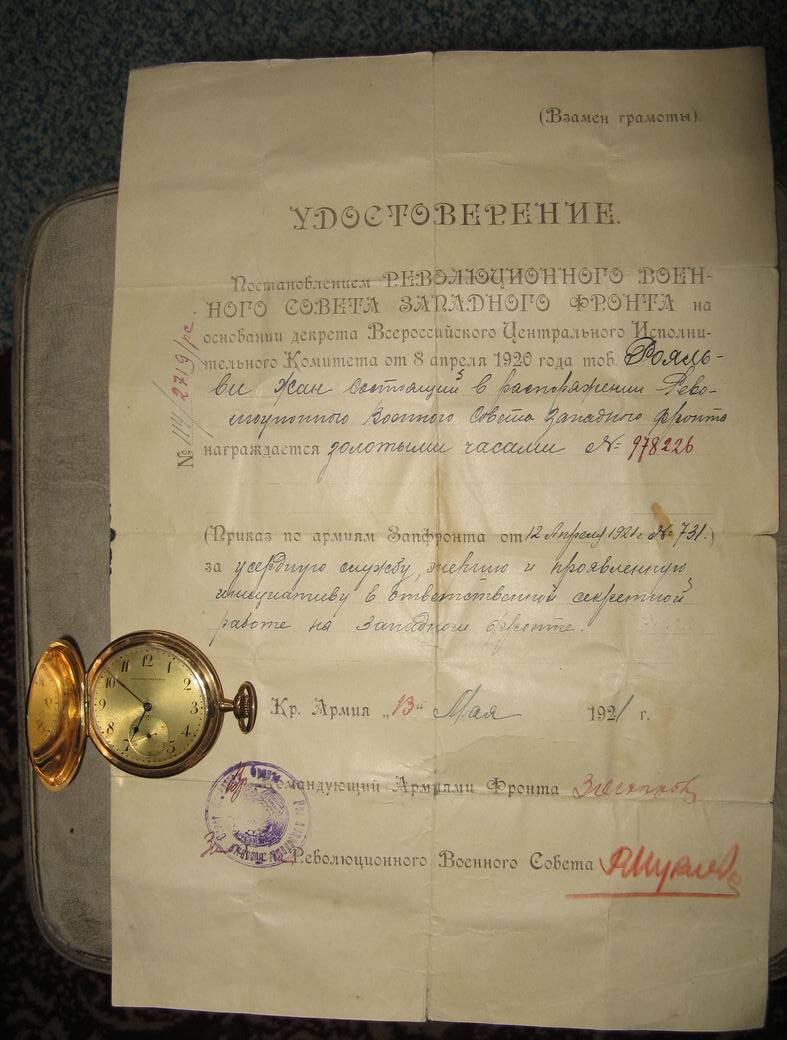 (Взамен грамоты).
УДОСТОВЕРЕНИЕ.
Постановлением РЕВОЛЮЦИОННОГО ВОЕН-
НОГО СОВЕТА ЗАПАДНОГО ФРОНТА на
основании декрета Всероссийского Центрального Исполни-
тельного Комитета от 8 апреля 1920 года тов. Рояль-
ви Жан состоящий в распоряжении Рево-
люционного Военного Совета Западного фронта
награждается золотыми часами № 978226
(Приказ по армиям Запфронта от 12 Апреля 1921 г. № 731.)
за усердную службу, энергию и проявленную
инициативу в ответственной секретной
работе на Западном фронте.
Кр. Армия „13" Мая 1921 г.
Командующий Армиями Фронта
Революционного Военного Совета
№ 114/2719/рс.
12
1
2
3
4
5
7
8
9
10
11